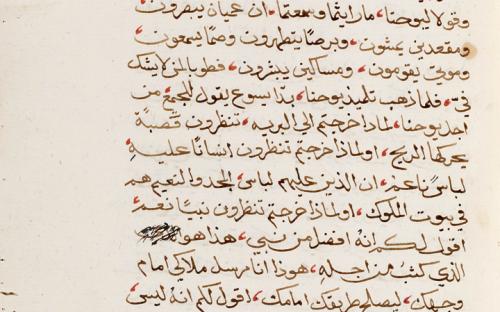 وقولا ليوحنا، ما رايتما وسمعتما، ان عميان يبصرون
ومقعدين يمشون، وبرصًا يتطهرون وصمًا يسمعون،
وموتي يقومون، ومساكين يبشرون، فطوبا لمن لا يشك
فيّ، فلما ذهب تلميذ يوحنا، بدا يسوع يقول للجمع من
اجل يوحنا، لماذا خرجتم الي البريه، تنظرون قصبةً
يحركها الريح، او لماذا خرجتم تنظرون انسانًا عليه
لباس ناعم، ان الذين عليهم لباس المجد والنعيم هم
في بيوت الملوك، او لماذا خرجتم تنظرون نبيًا نعم،
اقول لكم انه افضل من نبي، هذا هو
الذي كتب من اجله، هوذا انا مرسل ملاكي امام
وجهك، ليصلح طريقك امامك، اقول لكم انه ليس